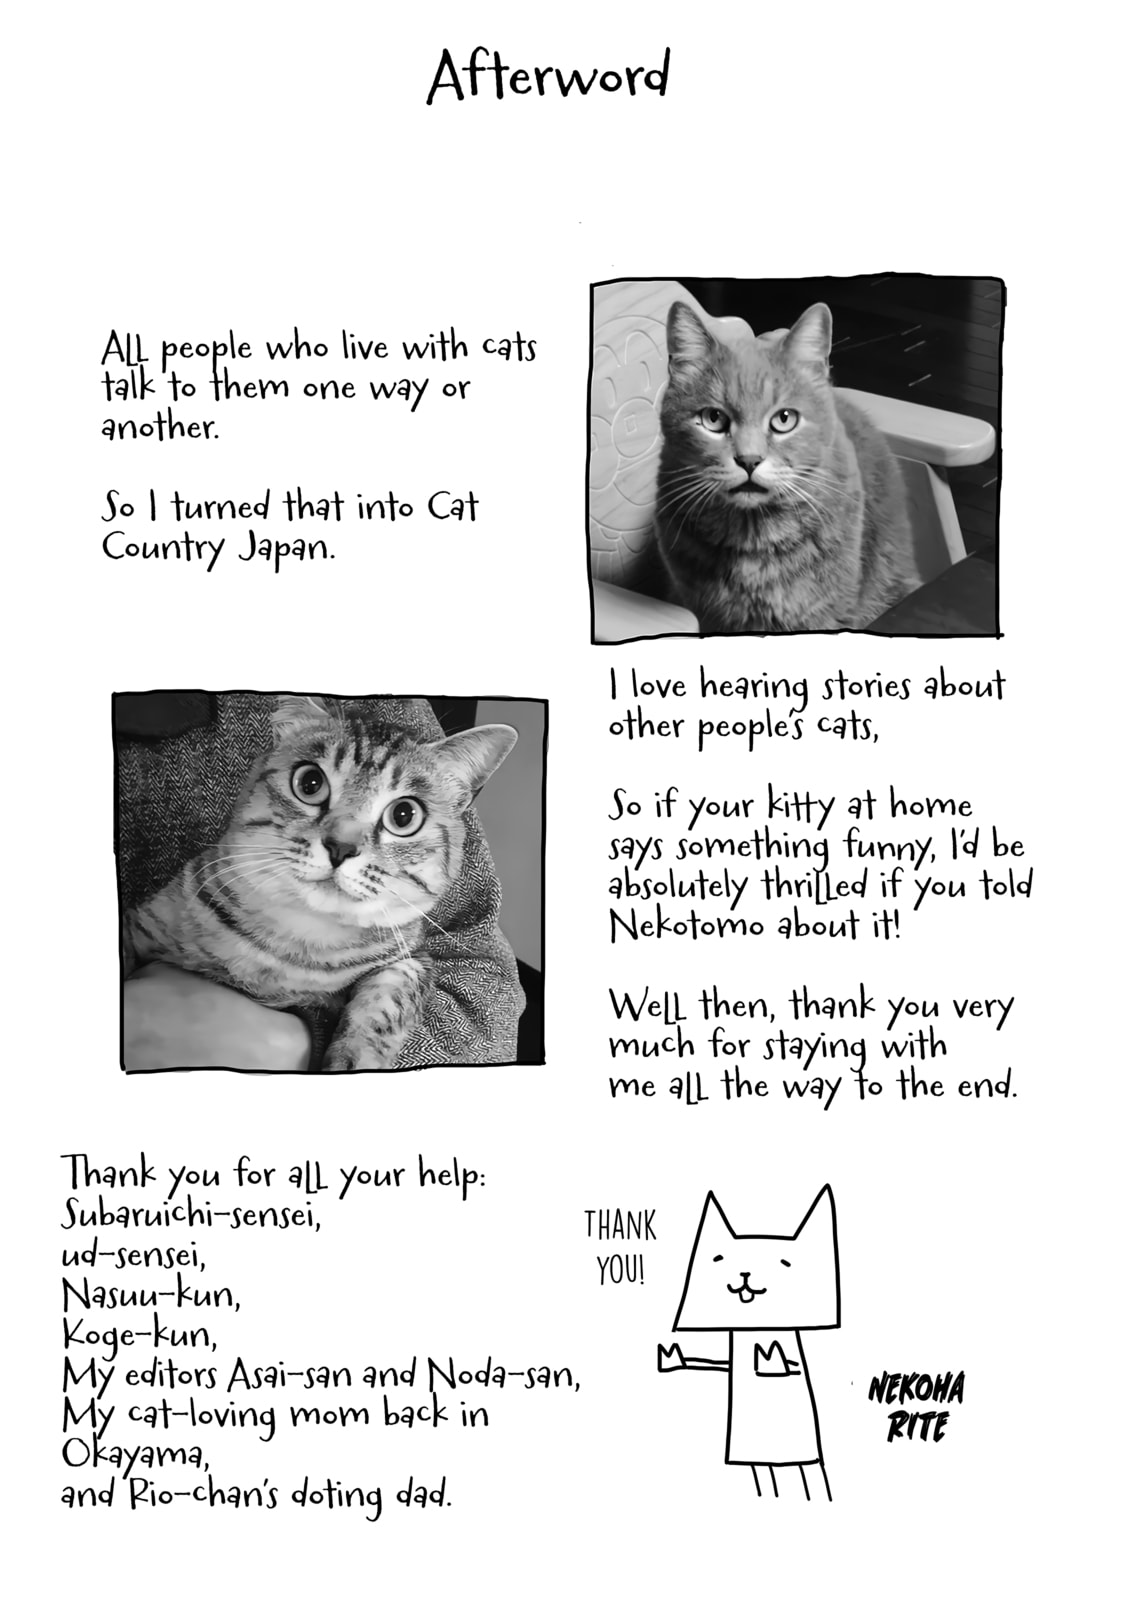 Afterword
All people who live with cats
talk to them one way or
another.
So I turned that into Cat
Country Japan.
I love hearing stories about
other people's cats,
So if your kitty at home
says something funny, I'd be
absolutely thrilled if you told
Nekotomo about it!
Well then, thank you very
much for staying with
me all the way to the end.
Thank you for all your help:
Subaruichi-sensei,
ud-sensei,
Nasuu-kun,
Koge-kun,
My editors Asai-san and Noda-san,
My cat-loving mom back in
Okayama,
and Rio-chan's doting dad.
THANK
YOU!
NEKOHA
RITE